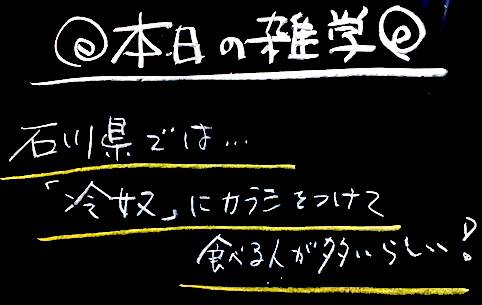 本日の雑学
石川県では…
「冷奴」にカラシをつけて
食べる人が多いらしい!